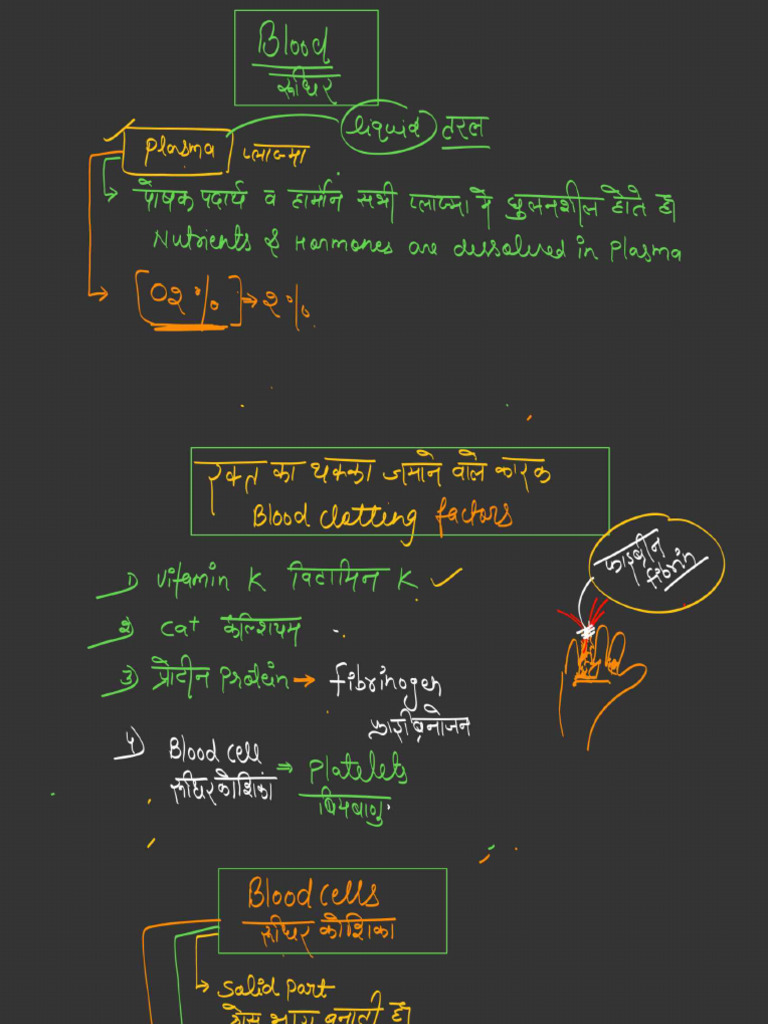 Blood
रूधिर
liquid तरल
Plasma प्लाज्मा
पोषक पदार्थ व हार्मोन सभी प्लाज्मा में घुलनशील होते है।
Nutrients & Hormones are dissolved in Plasma
[02%] → 2%
रक्त का थक्का जमाने वाले कारक
Blood clotting factors
1) Vitamin K विटामिन K
2) Ca+ कैल्शियम
3) प्रोटीन Protein → fibrinogen
4) Blood cell → Platelets
रूधिर कोशिका बिम्बाणु
फाइब्रीन
fibrin
Blood cells
रूधिर कोशिका
Solid Part
ठोस भाग बनाती है।